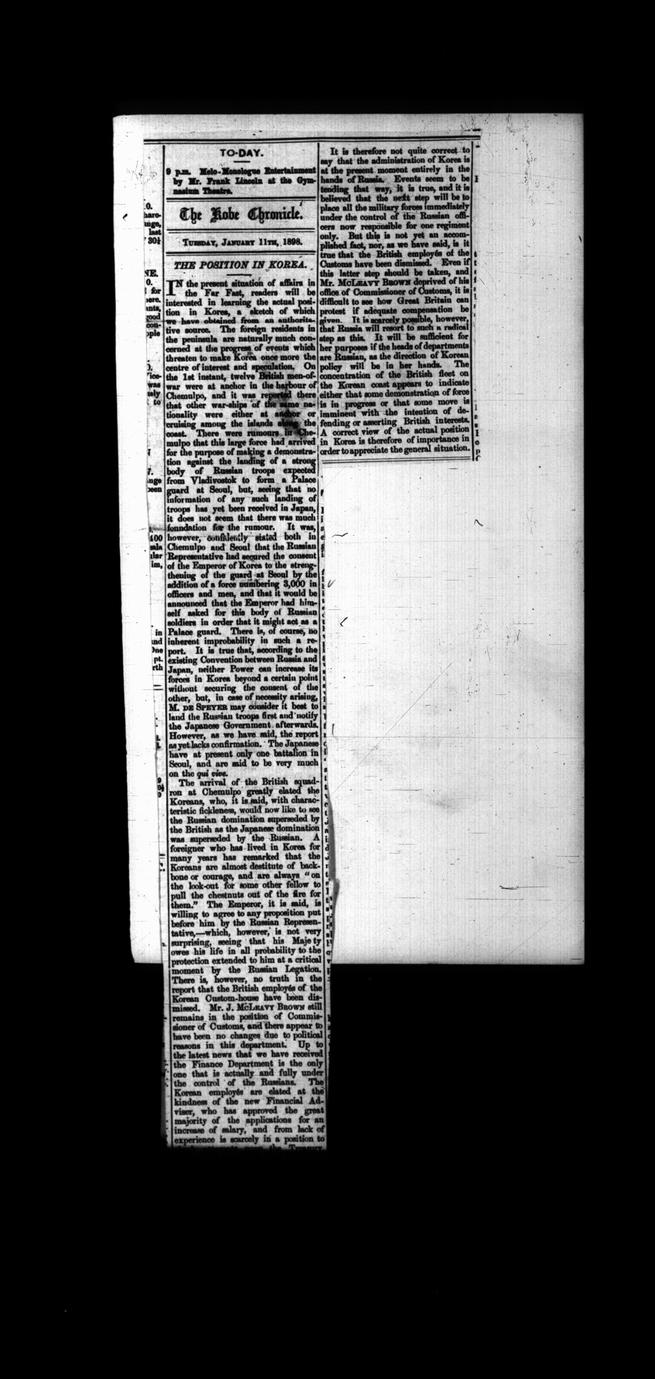 TO-DAY.
9 p.m. Melo-Monologue Entertainment
by Mr. Frank Lincoln at the Gym-
nasium Theatre.
The Kobe Chronicle.
TUESDAY, JANUARY 11TH, 1898.
THE POSITION IN KOREA.
IN the present situation of affairs in
the Far East, readers will be
interested in learning the actual posi-
tion in Korea, a sketch of which
we have obtained from an authorita-
tive source. The foreign residents in
the peninsula are naturally much con-
cerned at the progress of events which
threaten to make Korea once more the
centre of interest and speculation. On
the 1st instant, twelve British men-of-
war were at anchor in the harbour of
Chemulpo, and it was reported there
that other war-ships of the same na-
tionality were either at anchor or
cruising among the islands along the
coast. There were rumours in Che-
mulpo that this large force had arrived
for the purpose of making a demonstra-
tion against the landing of a strong
body of Russian troops expected
from Vladivostok to form a Palace
guard at Seoul, but, seeing that no
information of any such landing of
troops has yet been received in Japan,
it does not seem that there was much
foundation for the rumour. It was,
however, confidently stated both in
Chemulpo and Seoul that the Russian
Representative had secured the consent
of the Emperor of Korea to the streng-
thening of the guard at Seoul by the
addition of a force numbering 3,000 in
officers and men, and that it would be
announced that the Emperor had him-
self asked for this body of Russian
soldiers in order that it might act as a
Palace guard. There is, of course, no
inherent improbability in such a re-
port. It is true that, according to the
existing Convention between Russia and
Japan, neither Power can increase its
forces in Korea beyond a certain point
without securing the consent of the
other, but, in case of necessity arising,
M. DE SPEYER may consider it best to
land the Russian troops first and notify
the Japanese Government afterwards.
However, as we have said, the report
as yet lacks confirmation. The Japanese
have at present only one battalion in
Seoul, and are said to be very much
on the qui vive.
The arrival of the British squad-
ron at Chemulpo greatly elated the
Koreans, who, it is said, with charac-
teristic fickleness, would now like to see
the Russian domination superseded by
the British as the Japanese domination
was superseded by the Russian. A
foreigner who has lived in Korea for
many years has remarked that the
Koreans are almost destitute of back-
bone or courage, and are always "on
the look-out for some other fellow to
pull the chestnuts out of the fire for
them." The Emperor, it is said, is
willing to agree to any proposition put
before him by the Russian Represen-
tative,—which, however, is not very
surprising, seeing that his Majesty
owes his life in all probability to the
protection extended to him at a critical
moment by the Russian Legation.
There is, however, no truth in the
report that the British employés of the
Korean Custom-house have been dis-
missed. Mr. J. MCLEAVY BROWN still
remains in the position of Commis-
sioner of Customs, and there appear to
have been no changes due to political
reasons in this department. Up to
the latest news that we have received
the Finance Department is the only
one that is actually and fully under
the control of the Russians. The
Korean employés are elated at the
kindness of the new Financial Ad-
viser, who has approved the great
majority of the applications for an
increase of salary, and from lack of
experience is scarcely in a position to
It is therefore not quite correct to
say that the administration of Korea is
at the present moment entirely in the
hands of Russia. Events seem to be
tending that way, it is true, and it is
believed that the next step will be to
place all the military forces immediately
under the control of the Russian offi-
cers now responsible for one regiment
only. But this is not yet an accom-
plished fact, nor, as we have said, is it
true that the British employés of the
Customs have been dismissed. Even if
this latter step should be taken, and
Mr. MCLEAVY BROWN deprived of his
office of Commissioner of Customs, it is
difficult to see how Great Britain can
protest if adequate compensation be
given. It is scarcely possible, however,
that Russia will resort to such a radical
step as this. It will be sufficient for
her purposes if the heads of departments
are Russian, as the direction of Korean
policy will be in her hands. The
concentration of the British fleet on
the Korean coast appears to indicate
either that some demonstration of force
is in progress or that some move is
imminent with the intention of de-
fending or asserting British interests.
A correct view of the actual position
in Korea is therefore of importance in
order to appreciate the general situation.